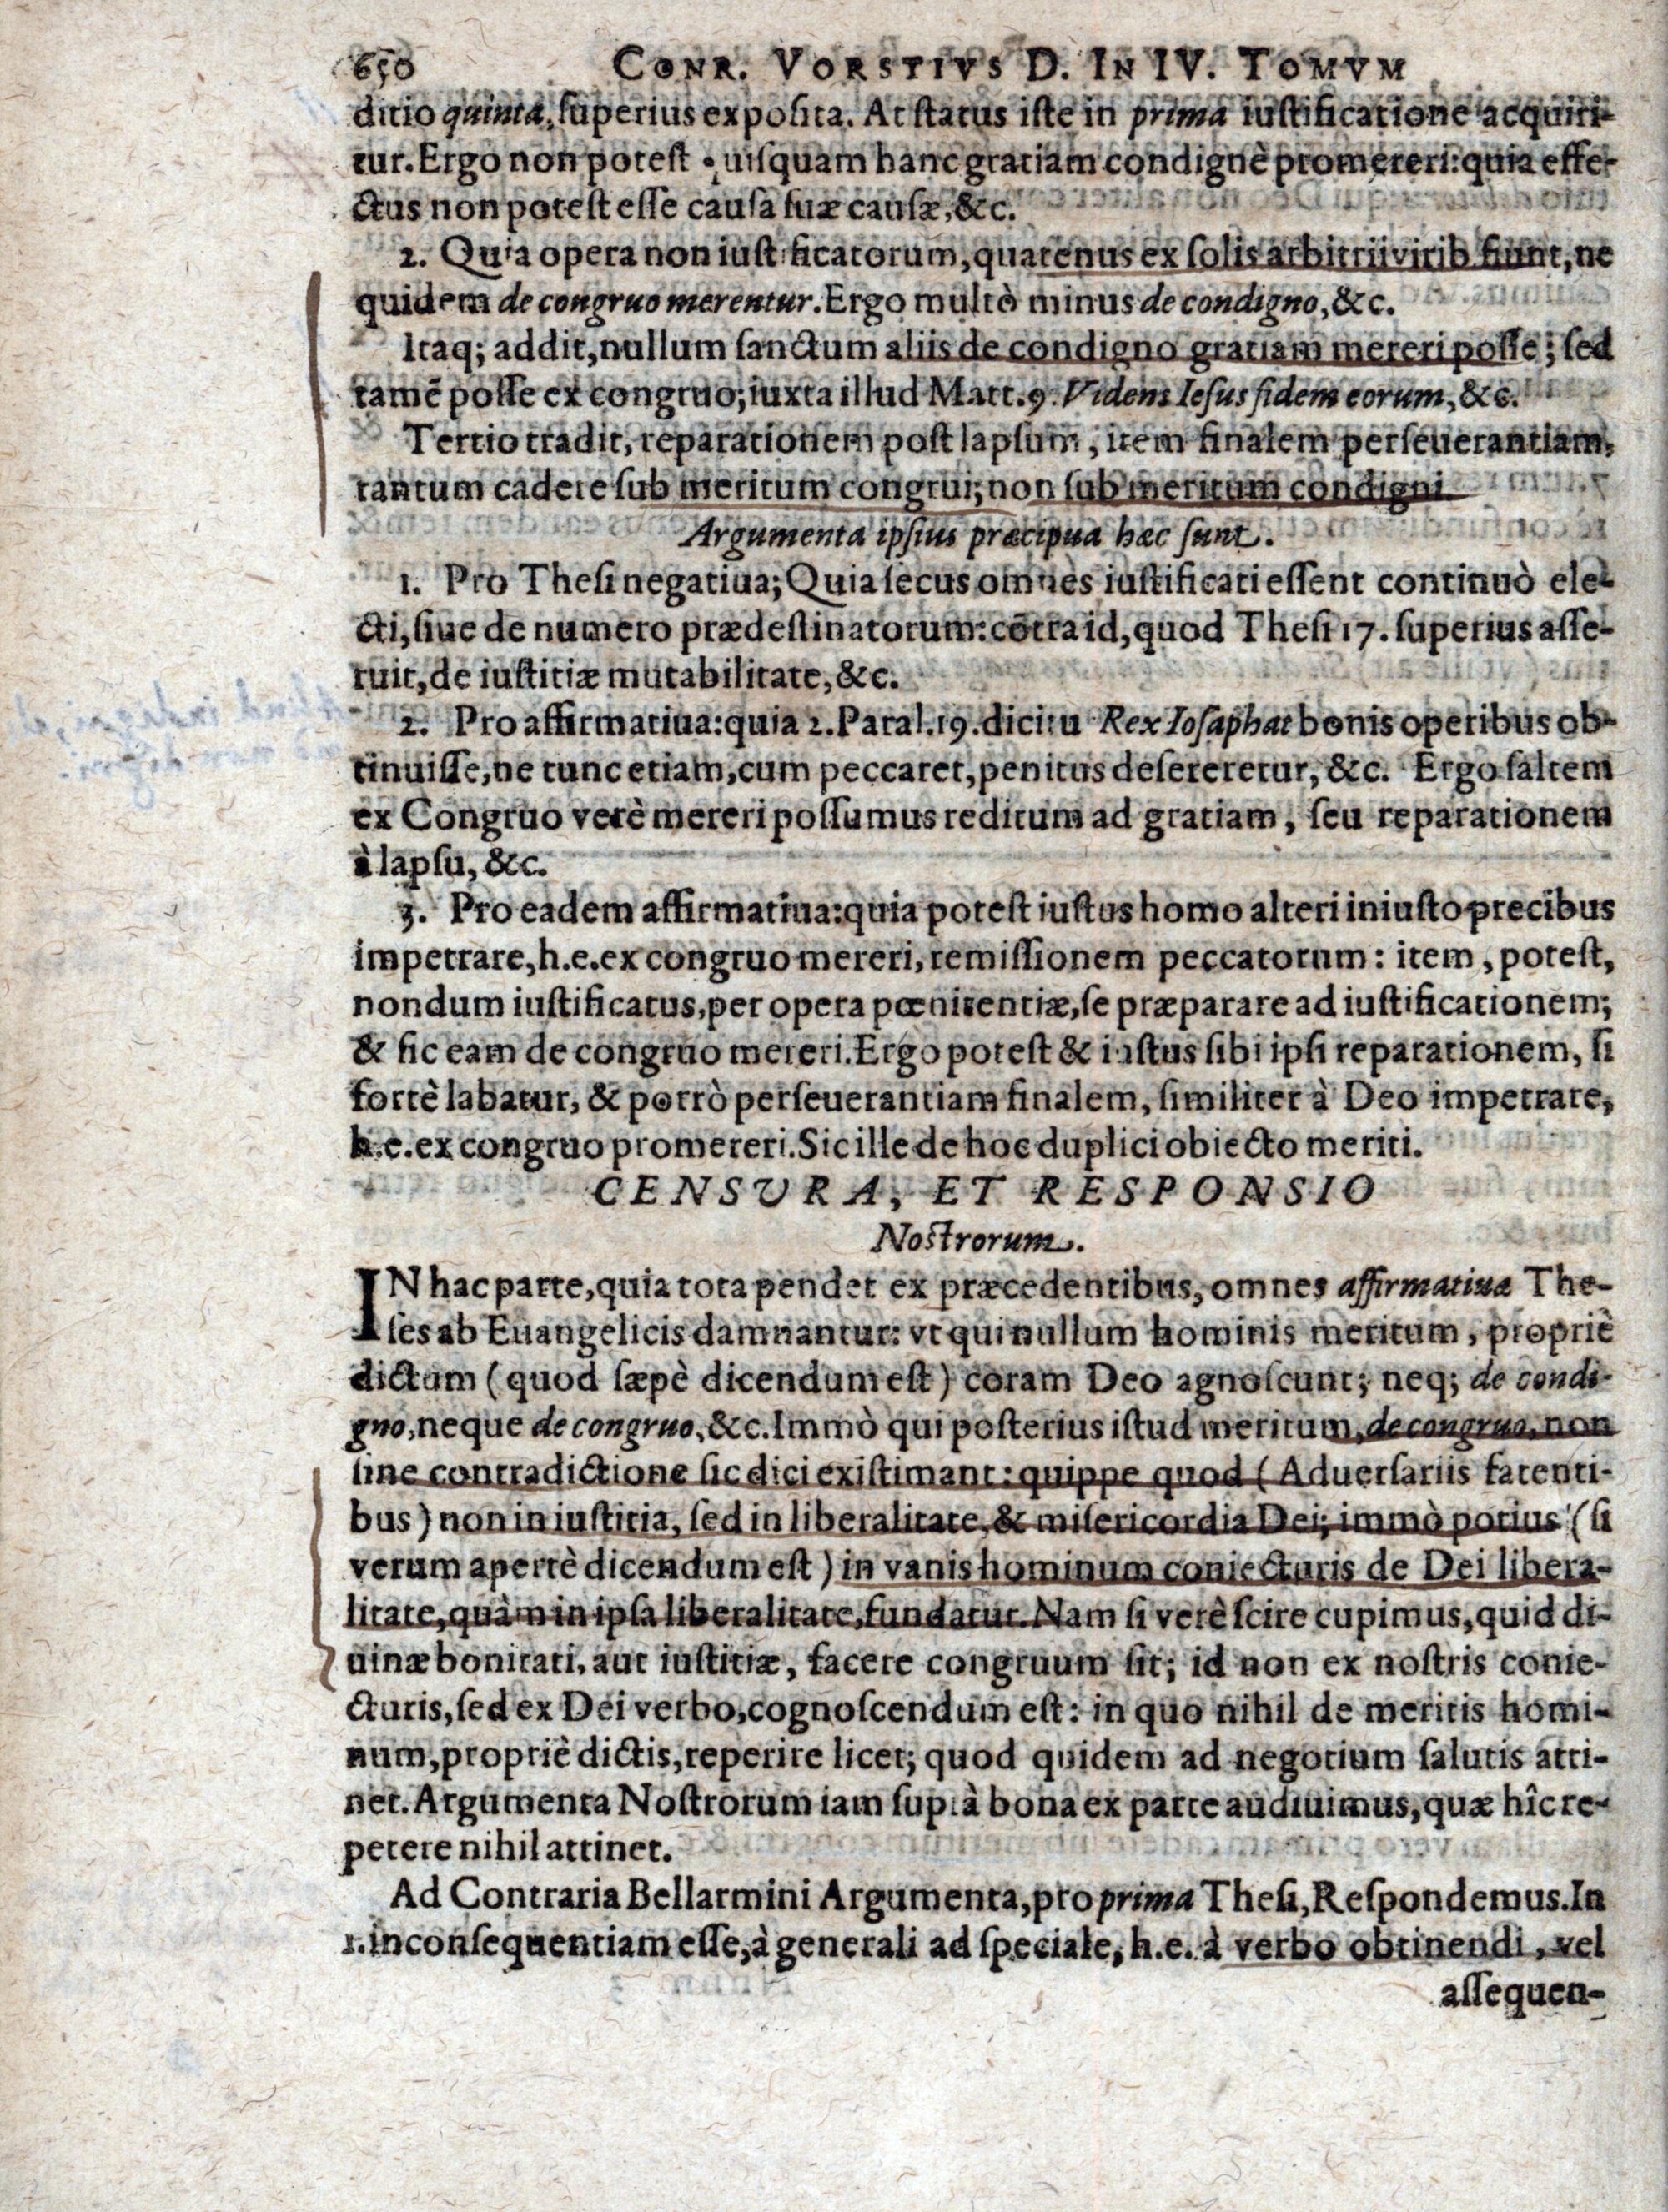 650 CONR. VORSTIVS D. IN IV. TOMVM
ditio quinta, ſuperius expoſita. At ſtatus iſte in prima iuſtificatione acquiri-
tur. Ergo non poteſt quiſquam hanc gratiam condignè promereri: quia effe-
ctus non poteſt eſſe cauſa ſuæ cauſæ, &c.
2. Quia opera non iuſtificatorum, quatenus ex ſolis arbitrii virib fiunt, ne
quidem de congruo merentur. Ergo multò minus de condigno, &c.
Itaq; addit, nullum ſanctum aliis de condigno gratiam mereri poſſe; ſed
tamē poſſe ex congruo; iuxta illud Matt. 9. Videns Ieſus fidem eorum, &c.
Tertio tradit, reparationem poſt lapſum, item finalem perſeuerantiam,
tantum cadere ſub meritum congrui; non ſub meritum condigni
Argumenta ipſius præcipua hæc ſunt.
1. Pro Theſi negatiua; Quia ſecus omnes iuſtificati eſſent continuò ele-
cti, ſiue de numero prædeſtinatorum: cōtra id, quod Theſi 17. ſuperius aſſe-
ruit, de iuſtitiæ mutabilitate, &c.
2. Pro affirmatiua: quia 2. Paral. 19. dicitu Rex Ioſaphat bonis operibus ob-
tinuiſſe, ne tunc etiam, cum peccaret, penitus deſereretur, &c. Ergo ſaltem
ex Congruo verè mereri poſſumus reditum ad gratiam, ſeu reparationem
à lapſu, &c.
3. Pro eadem affirmatiua: quia poteſt iuſtus homo alteri iniuſto precibus
impetrare, h.e. ex congruo mereri, remiſſionem peccatorum: item, poteſt,
nondum iuſtificatus, per opera pœnitentiæ, ſe præparare ad iuſtificationem;
& ſic eam de congruo mereri. Ergo poteſt & iuſtus ſibi ipſi reparationem, ſi
fortè labatur, & porrò perſeuerantiam finalem, ſimiliter à Deo impetrare,
h.e. ex congruo promereri. Sic ille de hoc duplici obiecto meriti.
CENSURA, ET RESPONSIO
Noſtrorum.
IN hac parte, quia tota pendet ex præcedentibus, omnes affirmatiuæ The-
ſes ab Euangelicis damnantur: vt qui nullum hominis meritum, propriè
dictum (quod ſæpè dicendum eſt) coram Deo agnoſcunt; neq; de condi-
gno, neque de congruo, &c. Immò qui poſterius iſtud meritum, de congruo, non
ſine contradictione ſic dici exiſtimant: quippe quod (Aduerſariis fatenti-
bus) non in iuſtitia, ſed in liberalitate, & miſericordia Dei; immò potius (ſi
verum apertè dicendum eſt) in vanis hominum coniecturis de Dei libera-
litate, quàm in ipſa liberalitate, fundatur. Nam ſi verè ſcire cupimus, quid di-
uinæ bonitati, aut iuſtitiæ, facere congruum ſit; id non ex noſtris conie-
cturis, ſed ex Dei verbo, cognoſcendum eſt: in quo nihil de meritis homi-
num, propriè dictis, reperire licet; quod quidem ad negotium ſalutis atti-
net. Argumenta Noſtrorum iam ſuprà bona ex parte audiuimus, quæ hîc re-
petere nihil attinet.
Ad Contraria Bellarmini Argumenta, pro prima Theſi, Reſpondemus. In
1. inconſequentiam eſſe, à generali ad ſpeciale, h.e. à verbo obtinendi, vel
aſſequen-